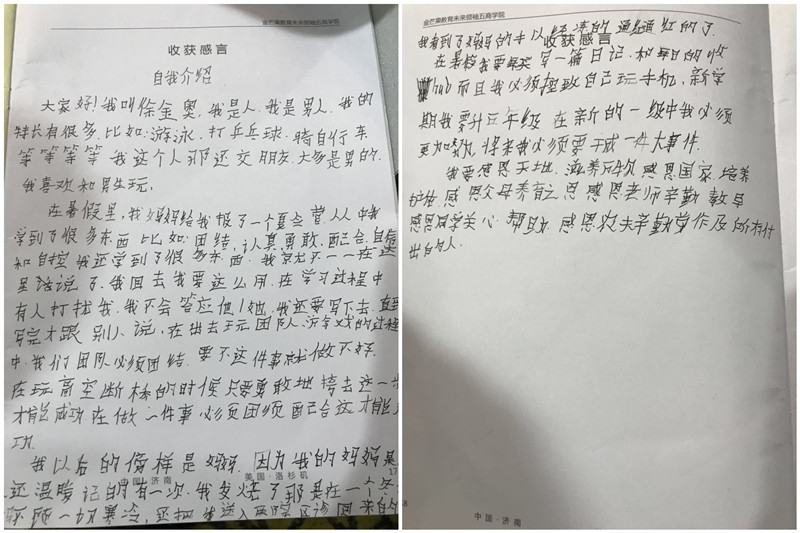 金芒果教育未来领袖五商学院
收获感言
自我介绍
大家好!我叫徐金奥,我是人.我是男人.我的
特长有很多.比如:游泳.打乒乓球.骑自行车
等等等等 我这个人那还交朋友.大多是男的.
我喜欢和男生玩.
在暑假里,我妈妈给我报了一个夏令营从中我
学到了很多东西 比如:团结,认真,勇敢,配合,自信
和自控 我还学到了很多东西.我就不一一在这
里陈说了.我回去我要这么用.在学习过程中
有人打扰我.我不会答应他/她,我还要写下去.直到
写完才跟别人说,在出去玩团队游戏的过程
中.我们团队必须团结.要不这件事就做不好.
在玩高空断桥的时候只要勇敢地挎去这一步
才能成功在做一件事必须团须配合这才能成
功.
我以后的傍样是妈妈.因为我的妈妈是
还温暖 记的有一次.我发烧了那是在一个
不顾一切寒冷,还把我送入医院 回来的
中国·济南
美国·洛杉矶
17
金芒果教育未来领袖五商学院
收获感言
我看到了妈妈的手以经冻的通通红的了.
在暑假我要每天写一篇日记.和每日的收
而且我必须控致自己玩手机,新学
期我要升三年级 在新的一级中我必须
更加努力,将来我必须要干成一件大事件.
我要感恩天地.滋养万物 感恩国家.培养
护佑.感恩父母养育之恩 感恩老师辛勤教导
感恩同学关心 帮助.感恩农夫辛勤劳作及所有付
出的人.
中国·济南